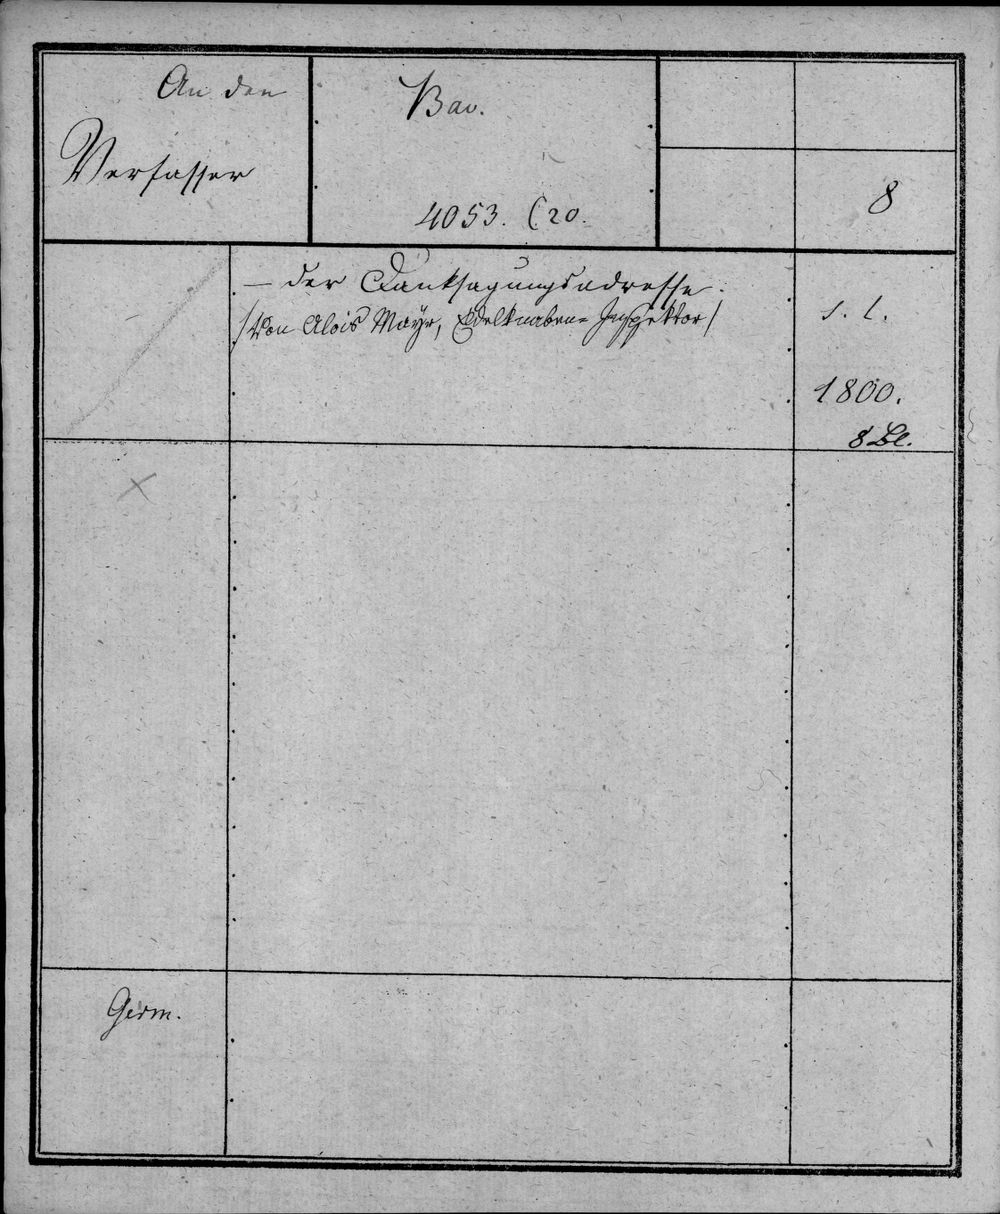 An den
Verfasser
Bav.
4053. (20.
8
— der Danksagungsadresse.
/Von Alois Mayr, Edelknaben= Inspektor/
s. l.
1800.
8 Bl.
Germ.